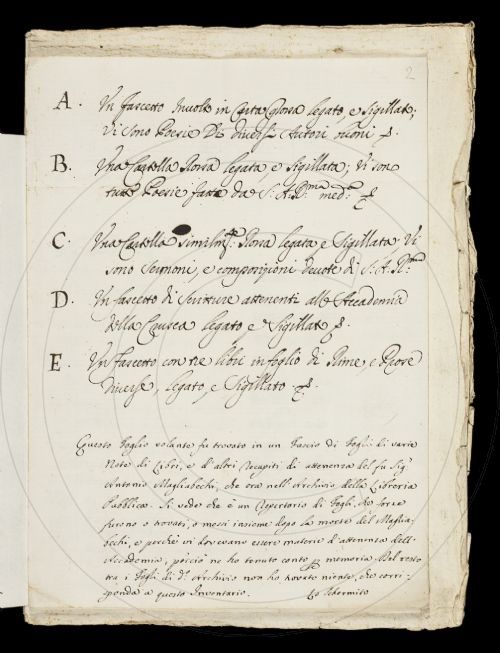 2
A. Un fascetto Involto in Carta Grossa legato, e Sigillato;
Vi sono Poesie Di diversi Autori
B. Una Cartella Rossa legata e Sigillata; Vi sono
tutte Poesie fatte da S. A. R.ma med.a
C. Una Cartella similm.te Rossa legata e Sigillata. Vi
sono Sermoni, e composizioni devote di S. A. R.ma
D. Un fascetto di Scritture attenenti all' Accademia
della Crusca legato e Sigillato
E. Un fascetto con tre libri in foglio di Rime, e Prose
diverse, legato, e Sigillato
Questo Foglio volante fu trovato in un Fascio di Fogli di varie
Note di Libri, e d'altri Recapiti di attenenza del fu Sig.r
Antonio Magliabechi, che era nell' Archivio della Libreria
Pubblica. Si vede che è un Repertorio di Fogli, che forse
furono o trovati, o messi insieme dopo la morte del Maglia-
bechi, e perchè vi dovevano essere materie d'attenenza dell'
Accademia, perciò ne ho tenuto conto p memoria. Del resto
tra i Fogli di d.o Archivio non ho trovato niente, che corri-
sponda a questo Inventario. Lo Schermito